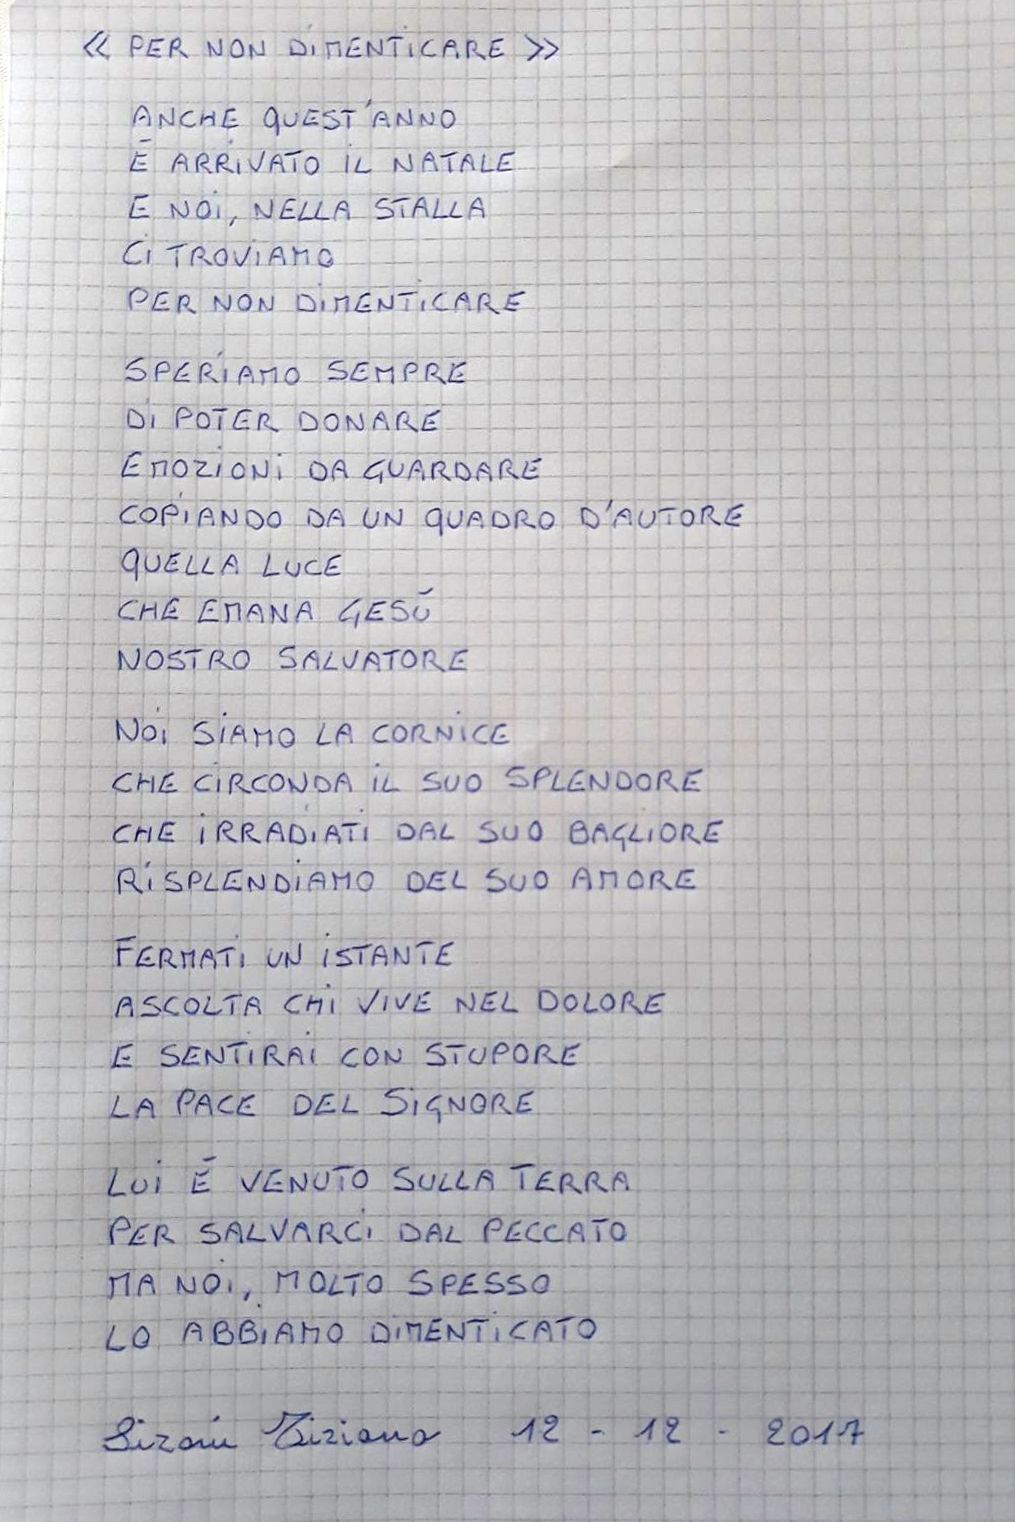 « PER NON DiMENTiCARE »
ANCHE QUEST'ANNO
É ARRiVATO iL NATALE
E NOi, NELLA STALLA
Ci TROViAMO
PER NON DiMENTiCARE
SPERiAMO SEMPRE
Di POTER DONARE
EMOZiONi DA GUARDARE
COPiANDO DA UN QUADRO D'AUTORE
QUELLA LUCE
CHE EMANA GESÚ
NOSTRO SALVATORE
NOi SiAMO LA CORNiCE
CHE CiRCONDA iL SUO SPLENDORE
CHE iRRADiATi DAL SUO BAGLiORE
RiSPLENDiAMO DEL SUO AMORE
FERMATi UN iSTANTE
ASCOLTA CHi ViVE NEL DOLORE
E SENTiRAi CON STUPORE
LA PACE DEL SiGNORE
LUi É VENUTO SULLA TERRA
PER SALVARCi DAL PECCATO
MA NOi, MOLTO SPESSO
LO ABBiAMO DiMENTiCATO
Tiziano 12 - 12 - 2017